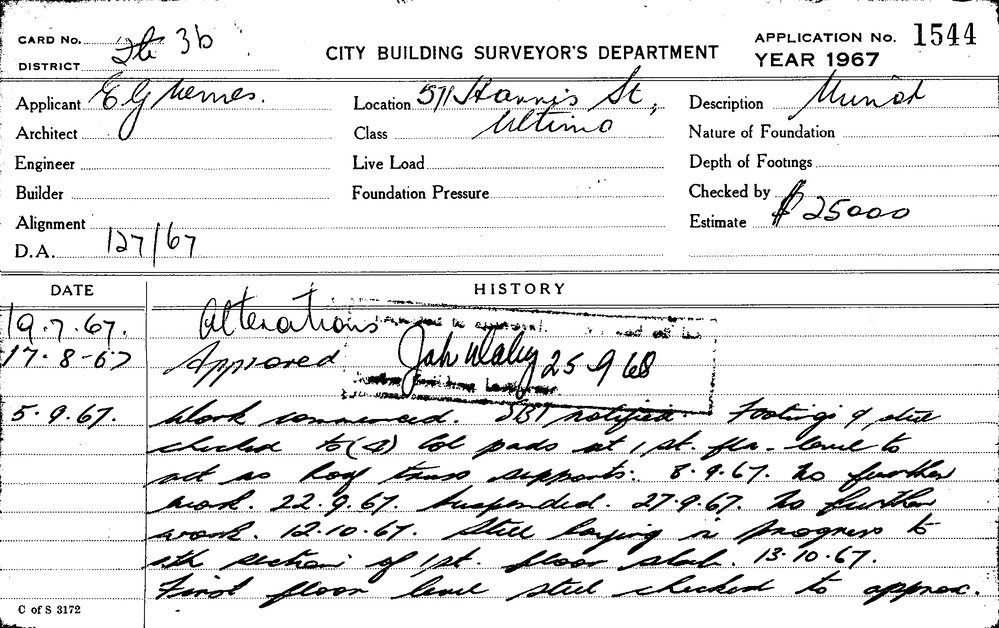 CARD No. 3b
DISTRICT
CITY BUILDING SURVEYOR'S DEPARTMENT
APPLICATION No. 1544
YEAR 1967
Applicant E G Nemes.
Location 571 Harris St,
Description
Architect
Class Ultimo
Nature of Foundation
Engineer
Live Load
Depth of Footings
Builder
Foundation Pressure
Checked by
Alignment
Estimate $25000
D.A. 127/67
DATE
HISTORY
19.7.67. Alterations
17-8-67 Approved
25 9 68
5.9.67. Work commenced. notified. Footings & steel
checked to (2) Col pads at 1st. flr. level to
act as roof truss supports. 8.9.67. No further
work. 22.9.67. Suspended. 27.9.67. No further
work. 12.10.67. Steel laying in progress to
sth section of 1st. floor slab. 13.10.67.
First floor level steel checked to approx.
C of S 3172